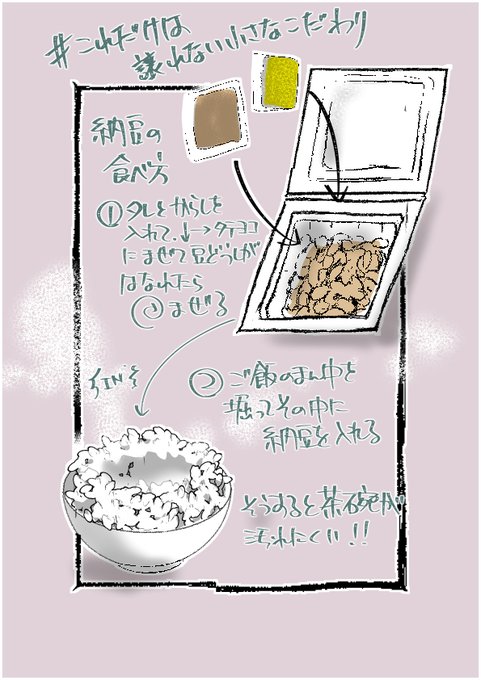 #これだけは
譲れない小さなこだわり
納豆の
食べ方
①タレとからしを
入れて、↓→タテヨコ
にまぜて豆どうしが
はなれたら
まぜる
②ご飯のまん中を
掘ってその中に
納豆を入れる
そうすると茶碗が
汚れにくい!!